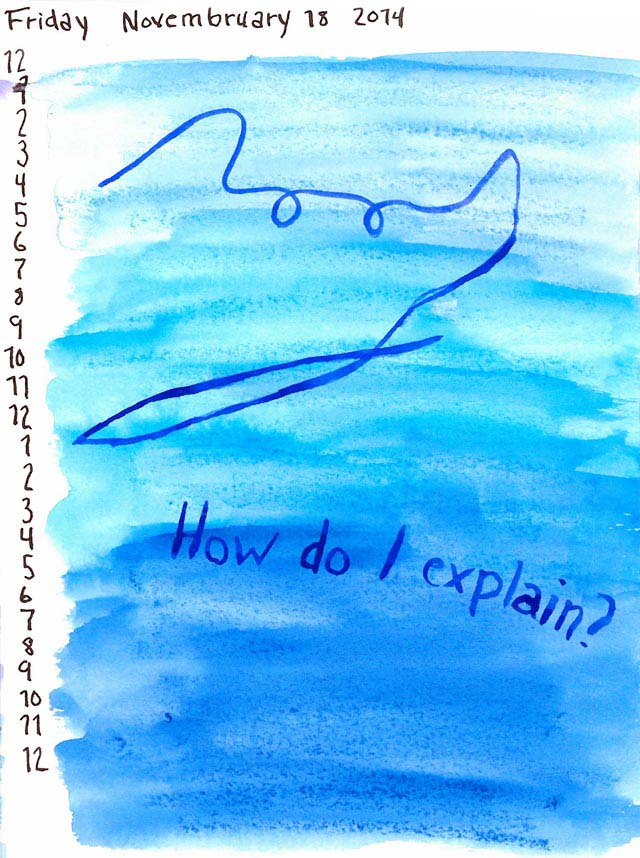 Friday Novembruary 18 2014
12
1
2
3
4
5
6
7
8
9
10
11
12
1
2
3
4
5
6
7
8
9
10
11
12
How do I explain?